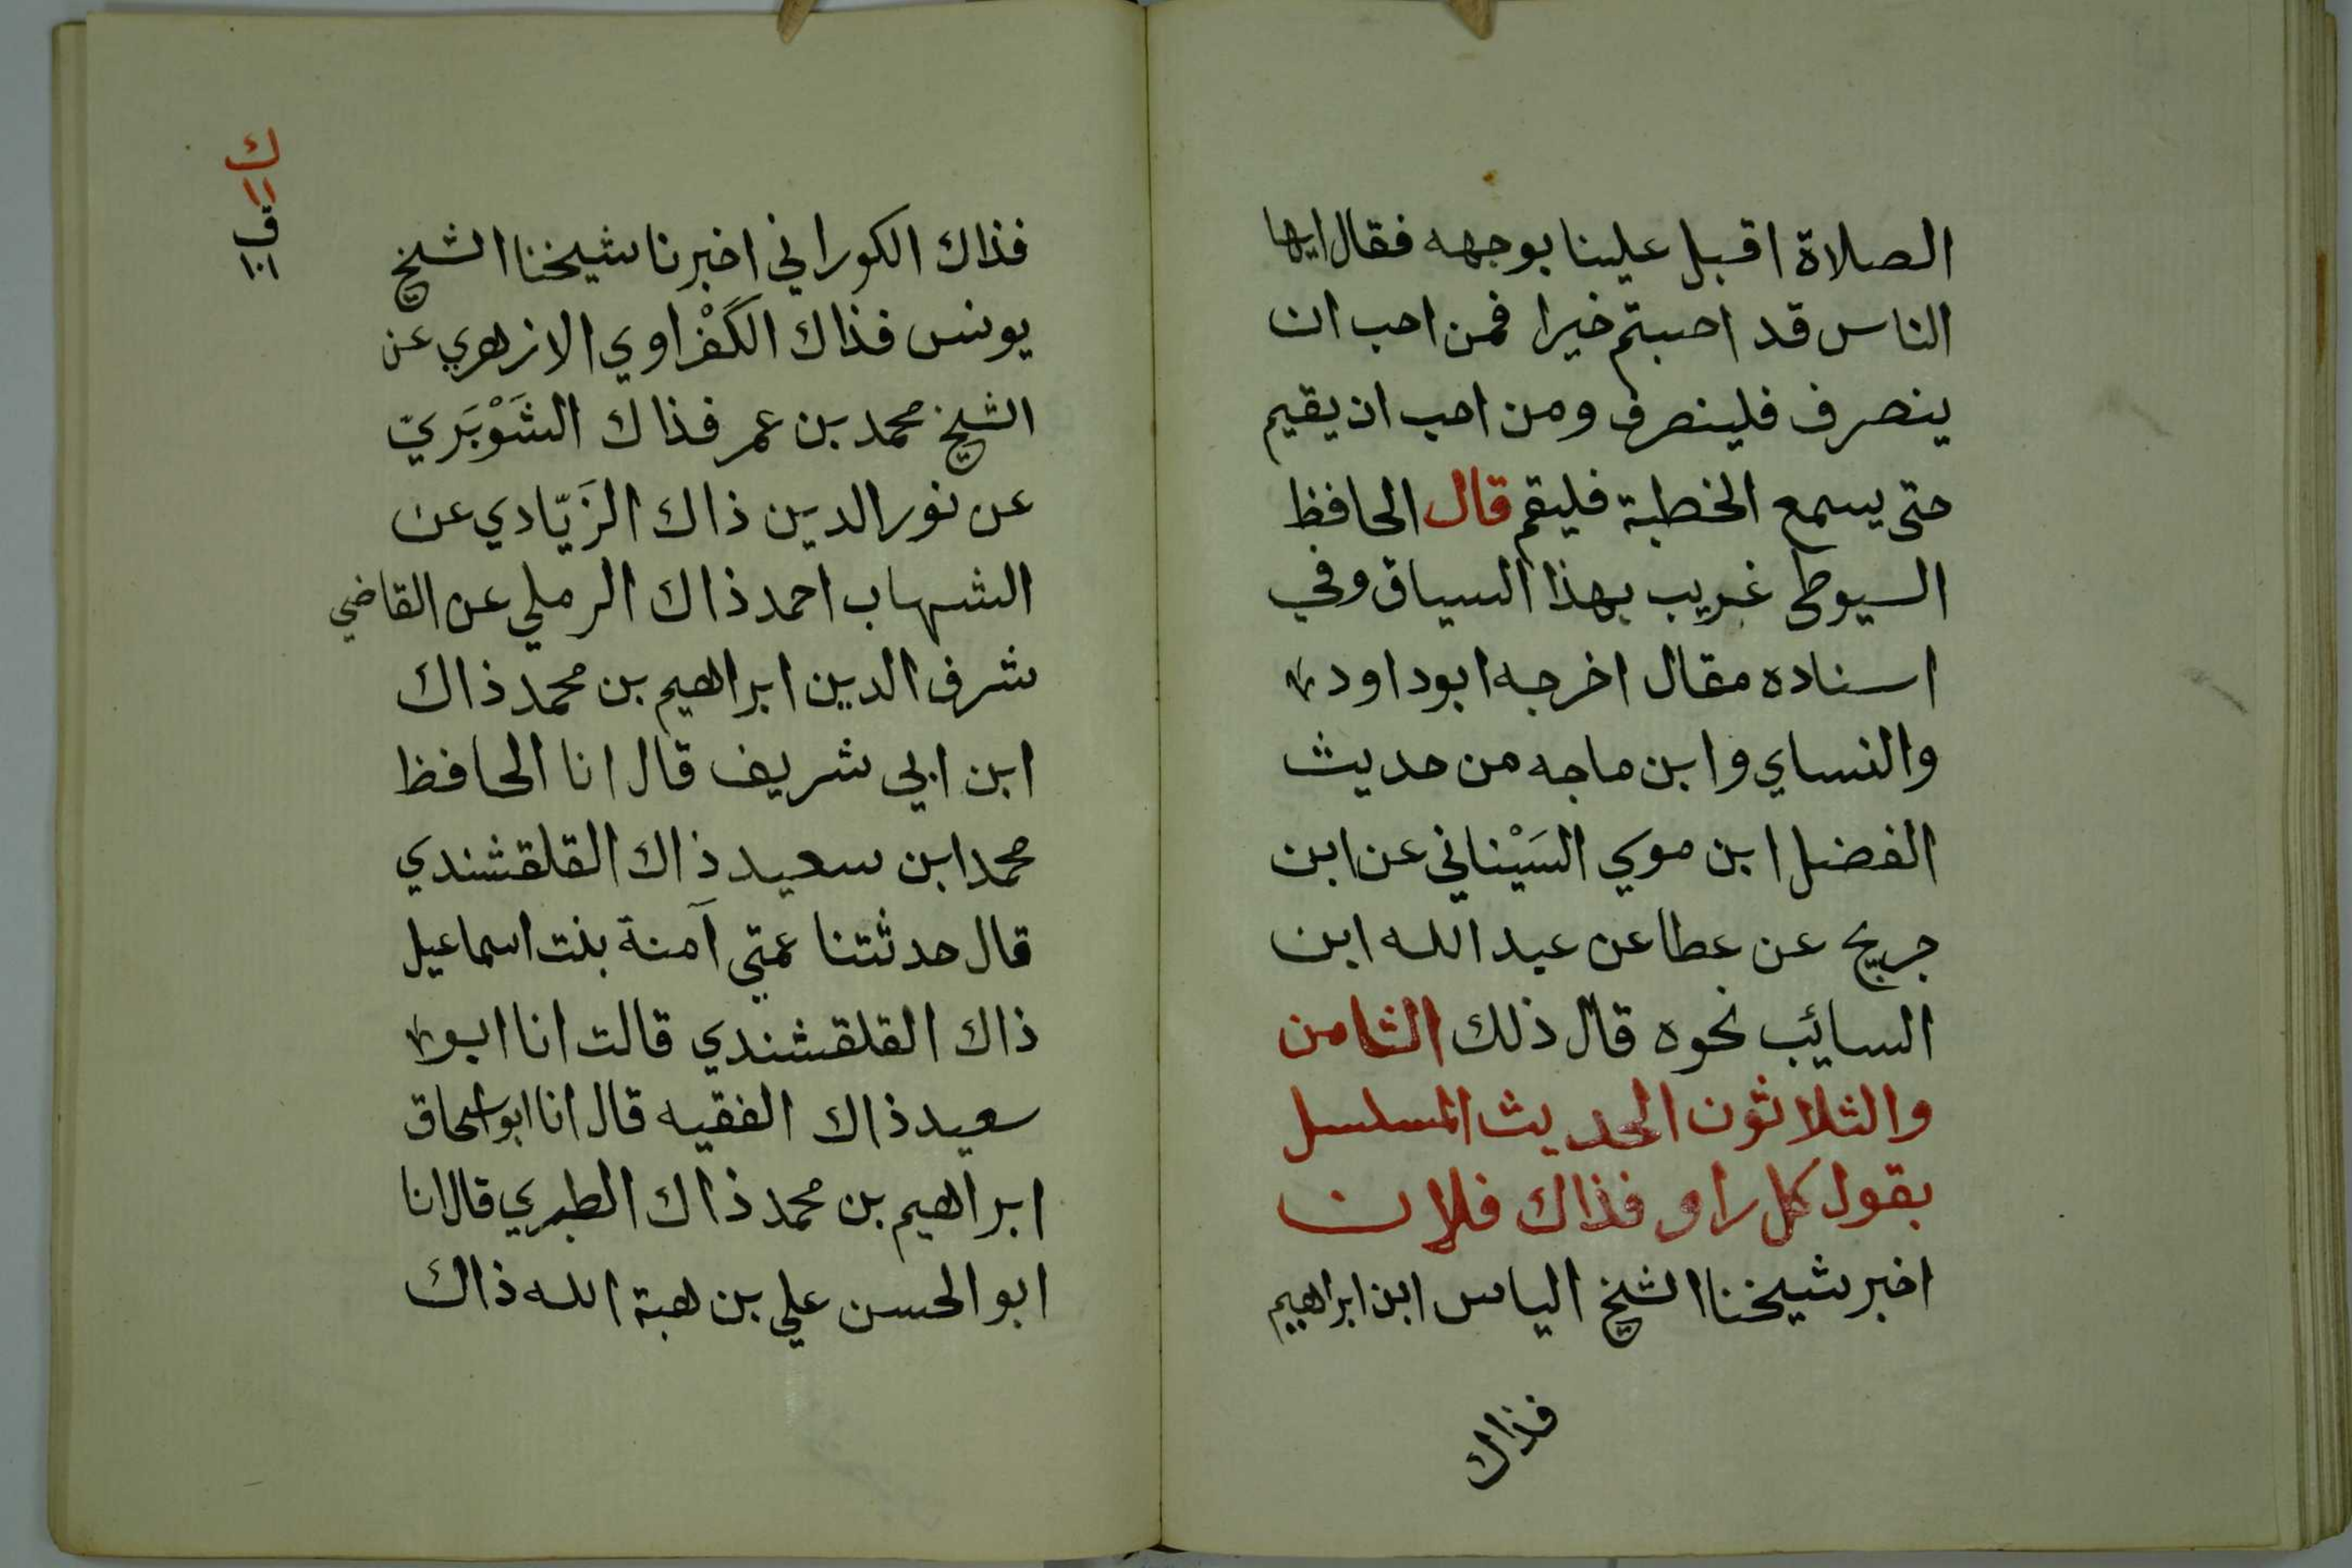 الصلاة اقبل علينا بوجهه فقال ايها
الناس قد اصبتم خيرا فمن احب ان
ينصرف فلينصرف ومن احب ان يقيم
حتى يسمع الخطبة فليقم قال الحافظ
السيوطي غريب بهذا السياق وفي
اسناده مقال اخرجه ابو داود
والنساي وابن ماجه من حديث
الفضل ابن موسي السَيْناني عن ابن
جريج عن عطا عن عبد الله ابن
السائيب نحوه قال ذلك الثامن
والثلاثون الحديث المسلسل
بقول كل راو فذاك فلان
اخبر شيخنا الشيخ الياس ابن ابراهيم
فذاك
ك
١١
ق
١٠١
فذاك الكوراني اخبرنا شيخنا الشيخ
يونس فذاك الكَفْراوي الازهري عن
الشيخ محمد بن عمر فذاك الشَوْبَريّ
عن نور الدين ذاك الزَيّادي عن
الشهاب احمد ذاك الرملي عن القاضي
شرف الدين ابراهيم بن محمد ذاك
ابن ابي شريف قال انا الحافظ
محمد ابن سعيد ذاك القلقشندي
قال حدثتنا عمتي آمنة بنت اسماعيل
ذاك القلقشندي قالت انا ابو
سعيد ذاك الفقيه قال انا ابو اسحاق
ابراهيم بن محمد ذاك الطبري قال انا
ابو الحسن علي بن هبة الله ذاك